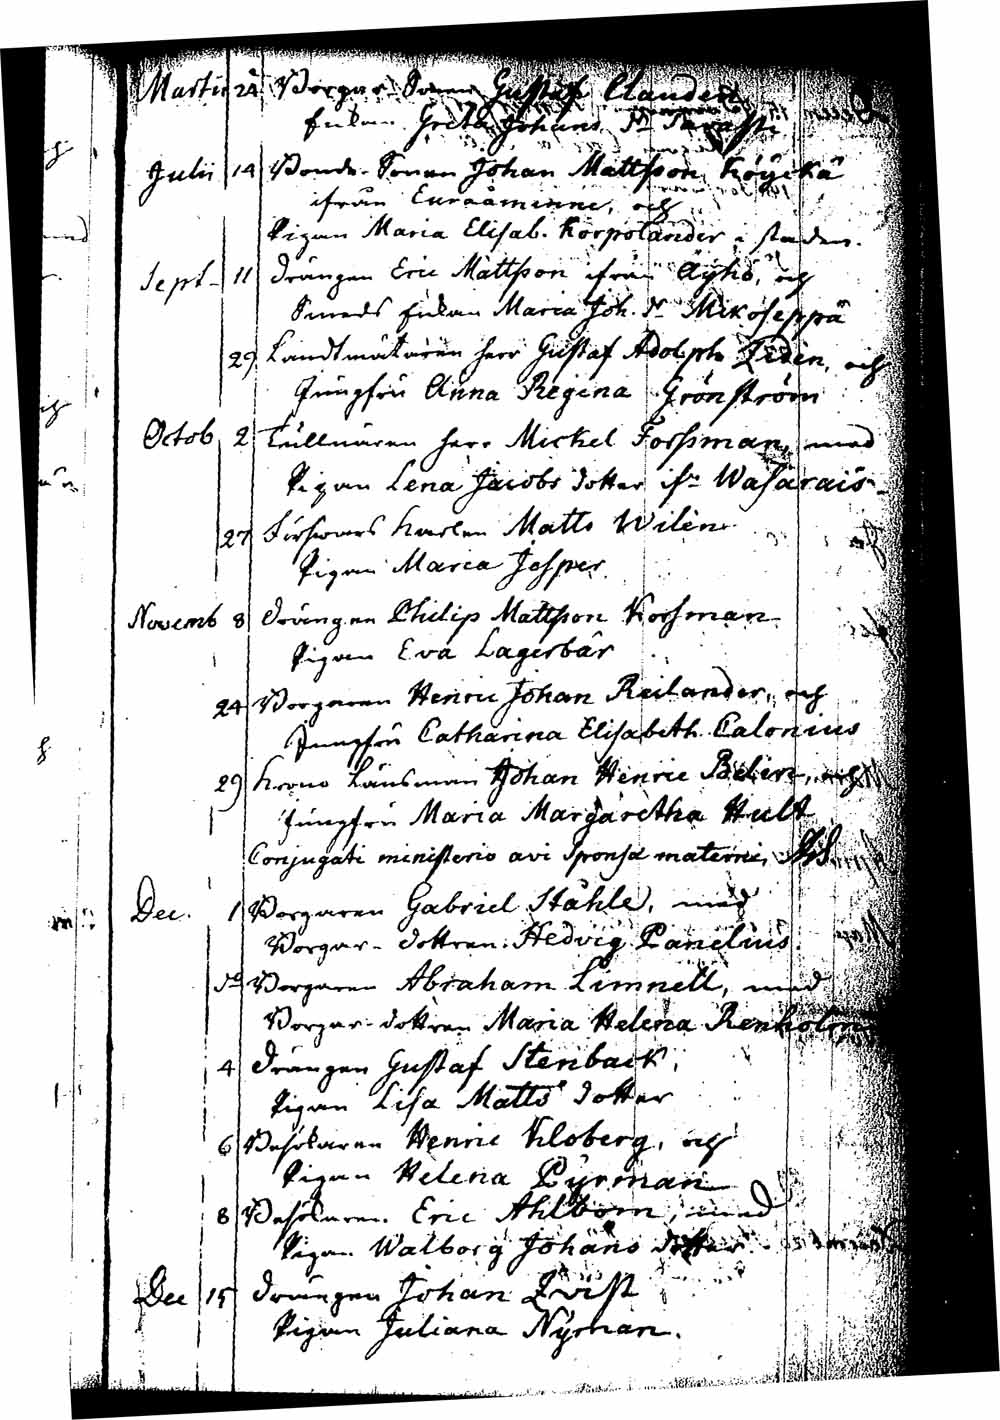 Martii 24 Borgar Sonen Gustaf Clauden
Enkan Greta Johans Dr
Julii 14 Bonde-Sonen Johan Mattsson Köyckä
ifrån Euraåminne, och
Pigan Maria Elisab. Korpolander i staden.
Sept. 11 Drängen Eric Mattsson ifrån Äyhö, och
Smeds Enkan Maria Joh. Dr Mikoseppä
29 Landtmätaren Herr Gustaf Adolph Zidén, och
Jungfru Anna Regina Grönström
Octob 2 Tullnären Herr Mickel Forssman, med
Pigan Lena Jacobs dotter fr. Wasarais
27 Försvars Karlen Matts Wilén
Pigan Maria Jesper
Novemb 8 Drängen Philip Mattsson Korsman
Pigan Eva Lagerbär
24 Borgaren Henric Johan Reilander, och
Jungfru Catharina Elisabeth Calonius
29 Krono Länsman Johan Henric Belin, och
Jungfru Maria Margaretha Hult
Conjugati ministerio avi Sponsæ materni,
Dec. 1 Borgaren Gabriel Ståhle, med
Borgar-dottren Hedvig Panelius
do Borgaren Abraham Limnell, med
Borgar-dottren Maria Helena Renholm
4 Drängen Gustaf Stenback,
Pigan Lisa Matts dotter
6 Besökaren Henric Kloberg, och
Pigan Helena Pyrman
8 Besökaren Eric Ahlbom, med
Pigan Walborg Johans dotter
Dec 15 Drängen Johan Qvist
Pigan Juliana Nyman.